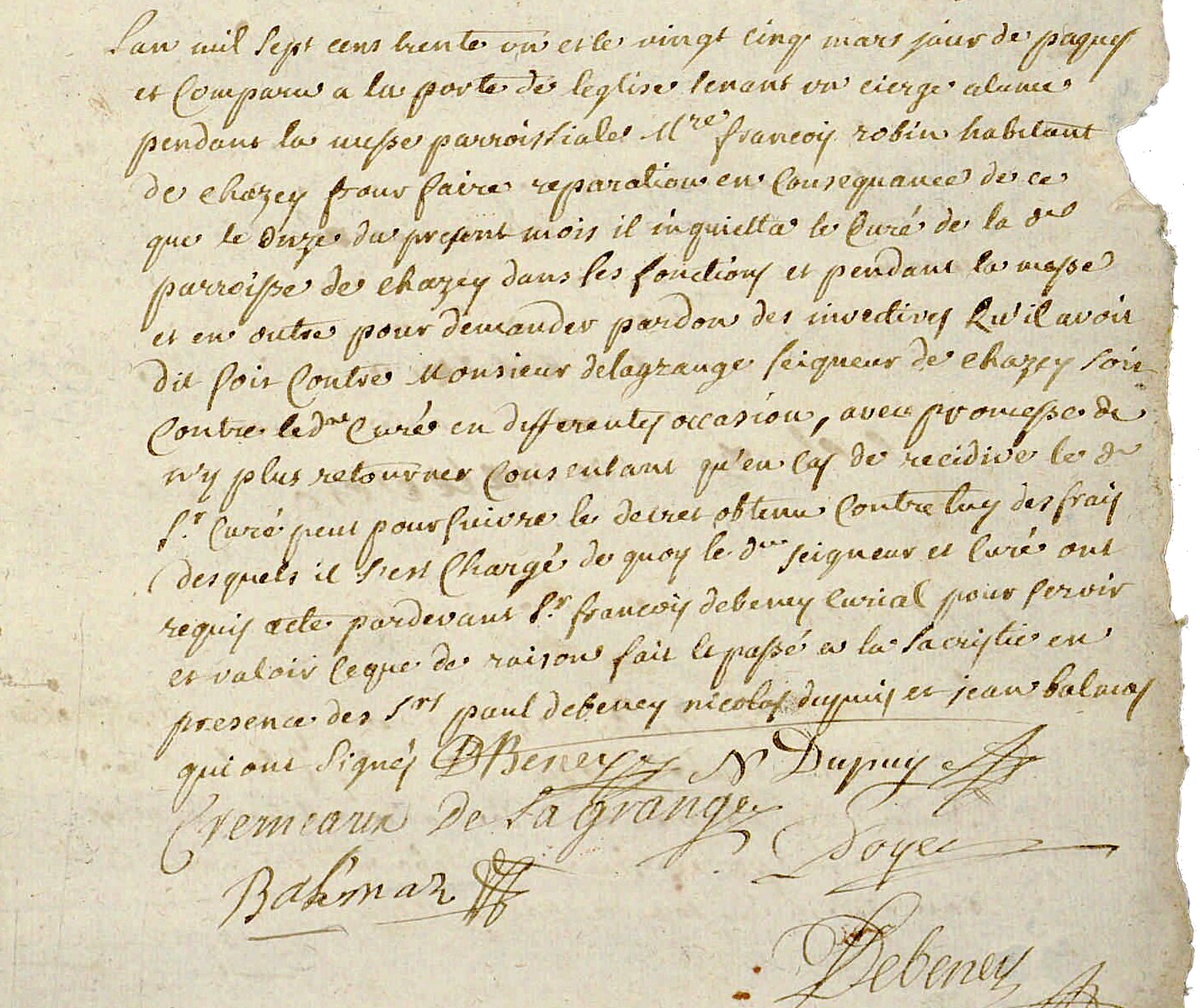 Lan mil sept cens trente un et le vingt cinq mars jour de paques
et Comparu a la porte de leglise tenant un cierge alumé
pendant la messe parroissiale Mre françois robin habitant
de chazey pour faire reparation en Consequance de ce
que le onze du present mois il inquietta le Curé de la de
parroisse de chazey dans ses fonctions et pendant la messe
et en outre pour demander pardon des invectives Qu'il avoit
dit soit Contre Monsieur delagrange seigneur de chazey soit
Contre ledt Curé en differentes occasion, avec promesse de
n'y plus retourner Consentant qu'en cas de recidive le dt
Sr Curé peut poursuivre le decret obtenu Contre luy des frais
desquels il s'est Chargé de quoy le dt seigneur et Curé ont
requis acte pardevant Sr françois debeney Curial pour servir
et valoir ceque de raison fait et passé a la sacristie en
presence des Srs paul debeney nicolas dupuis et jean balmas
qui ont signés DBeney N Dupuy
Cremeaux De Lagrange
Doyer
Balmaz
Debeney